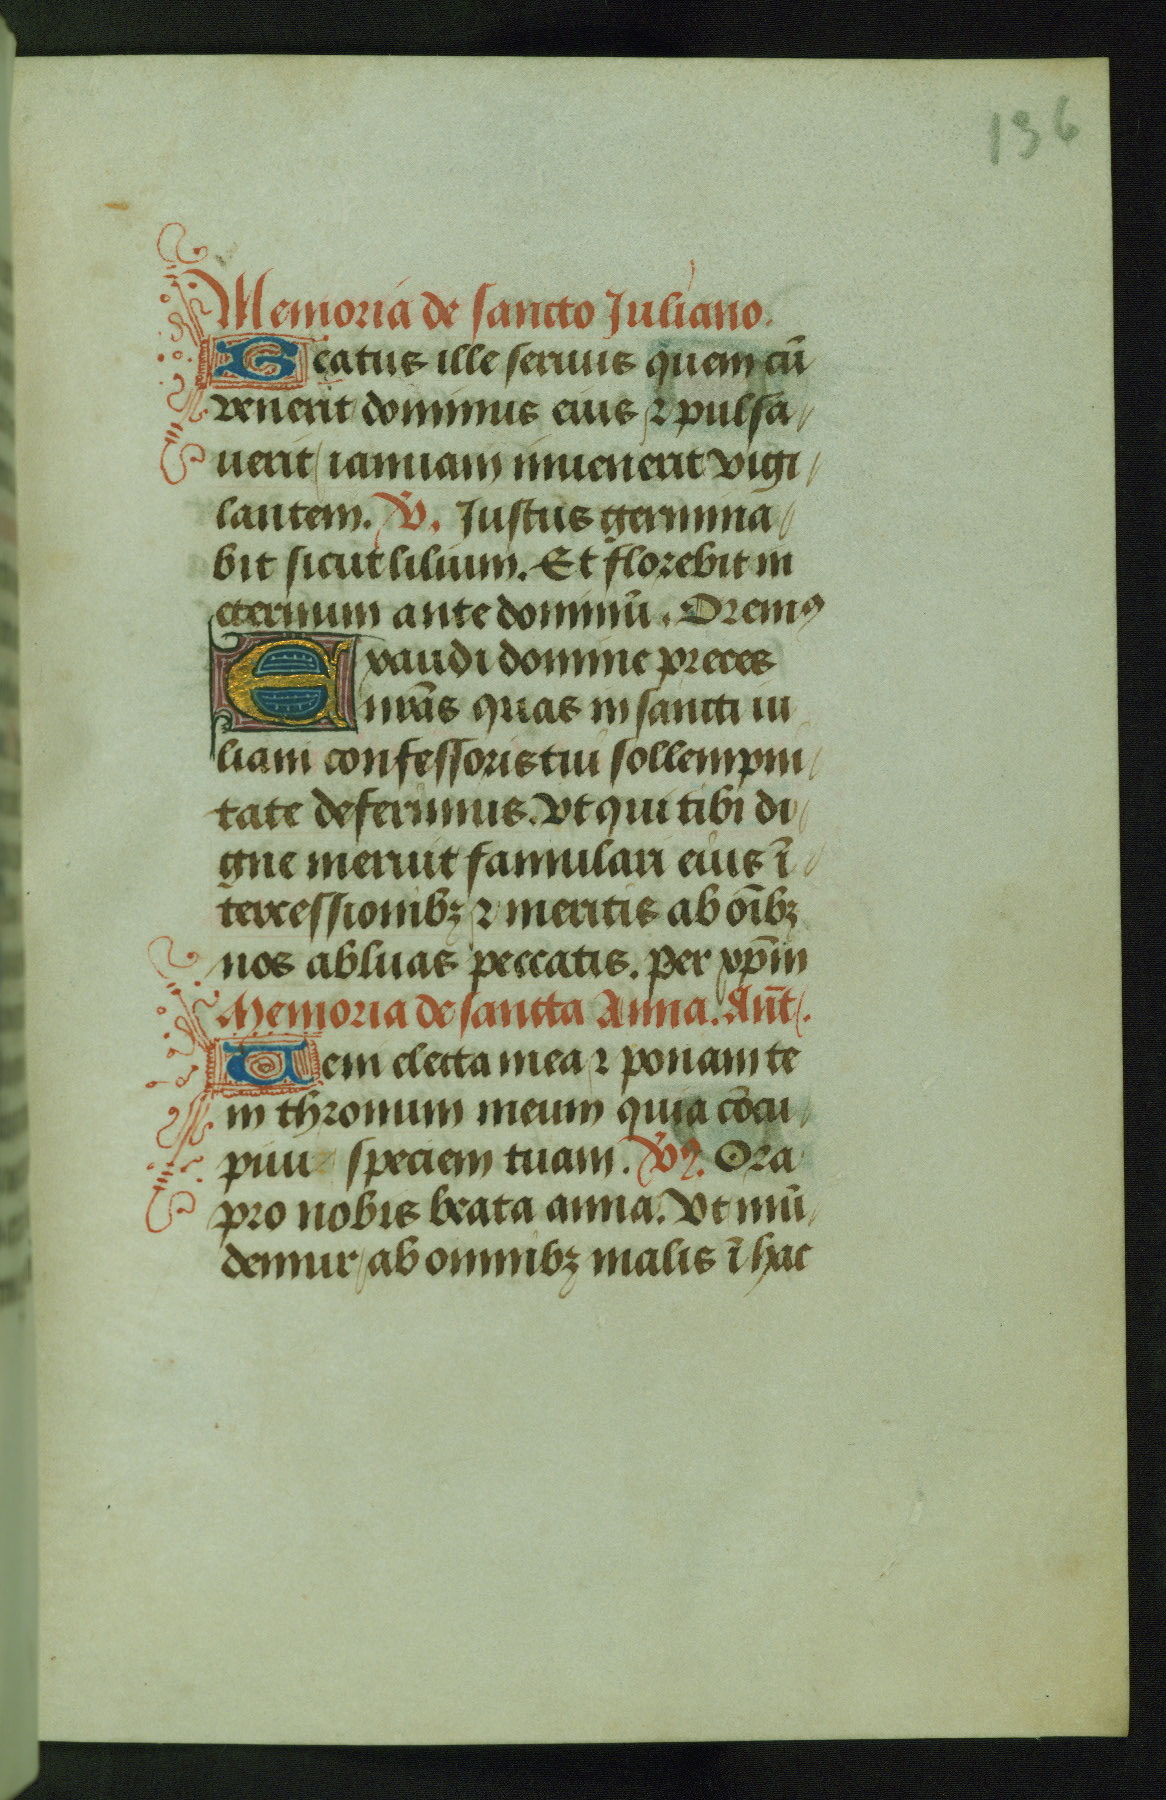 136
Memoria de sancto Juliano.
Beatus ille seruus quem cū
venerit dominus eius ⁊ pulsa/
uerit ianuam inuenerit vigi/
lantem. V. Justus germina/
bit sicut lilium. Et florebit in
eternum ante dominū. Oremꝰ
Exaudi domine preces
nr̄as quas in sancti iu
liani confessoris tui sollempni/
tate deferimus. Vt qui tibi di/
gne meruit famulari eius ī/
tercessionibꝫ ⁊ meritis ab oībꝫ
nos abluas peccatis. Per xp̄m
Memoria de sancta Anna. Añt.
Veni electa mea ⁊ ponam te
in thronum meum quia cōcu/
piui speciem tuam. V. Ora
pro nobis beata anna. Vt mū/
demur ab omnibꝫ malis ī hac